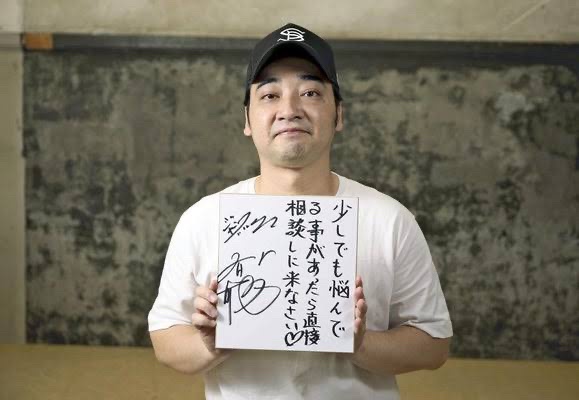 少しでも悩んで
る事があったら直接
相談しに来なさい♡